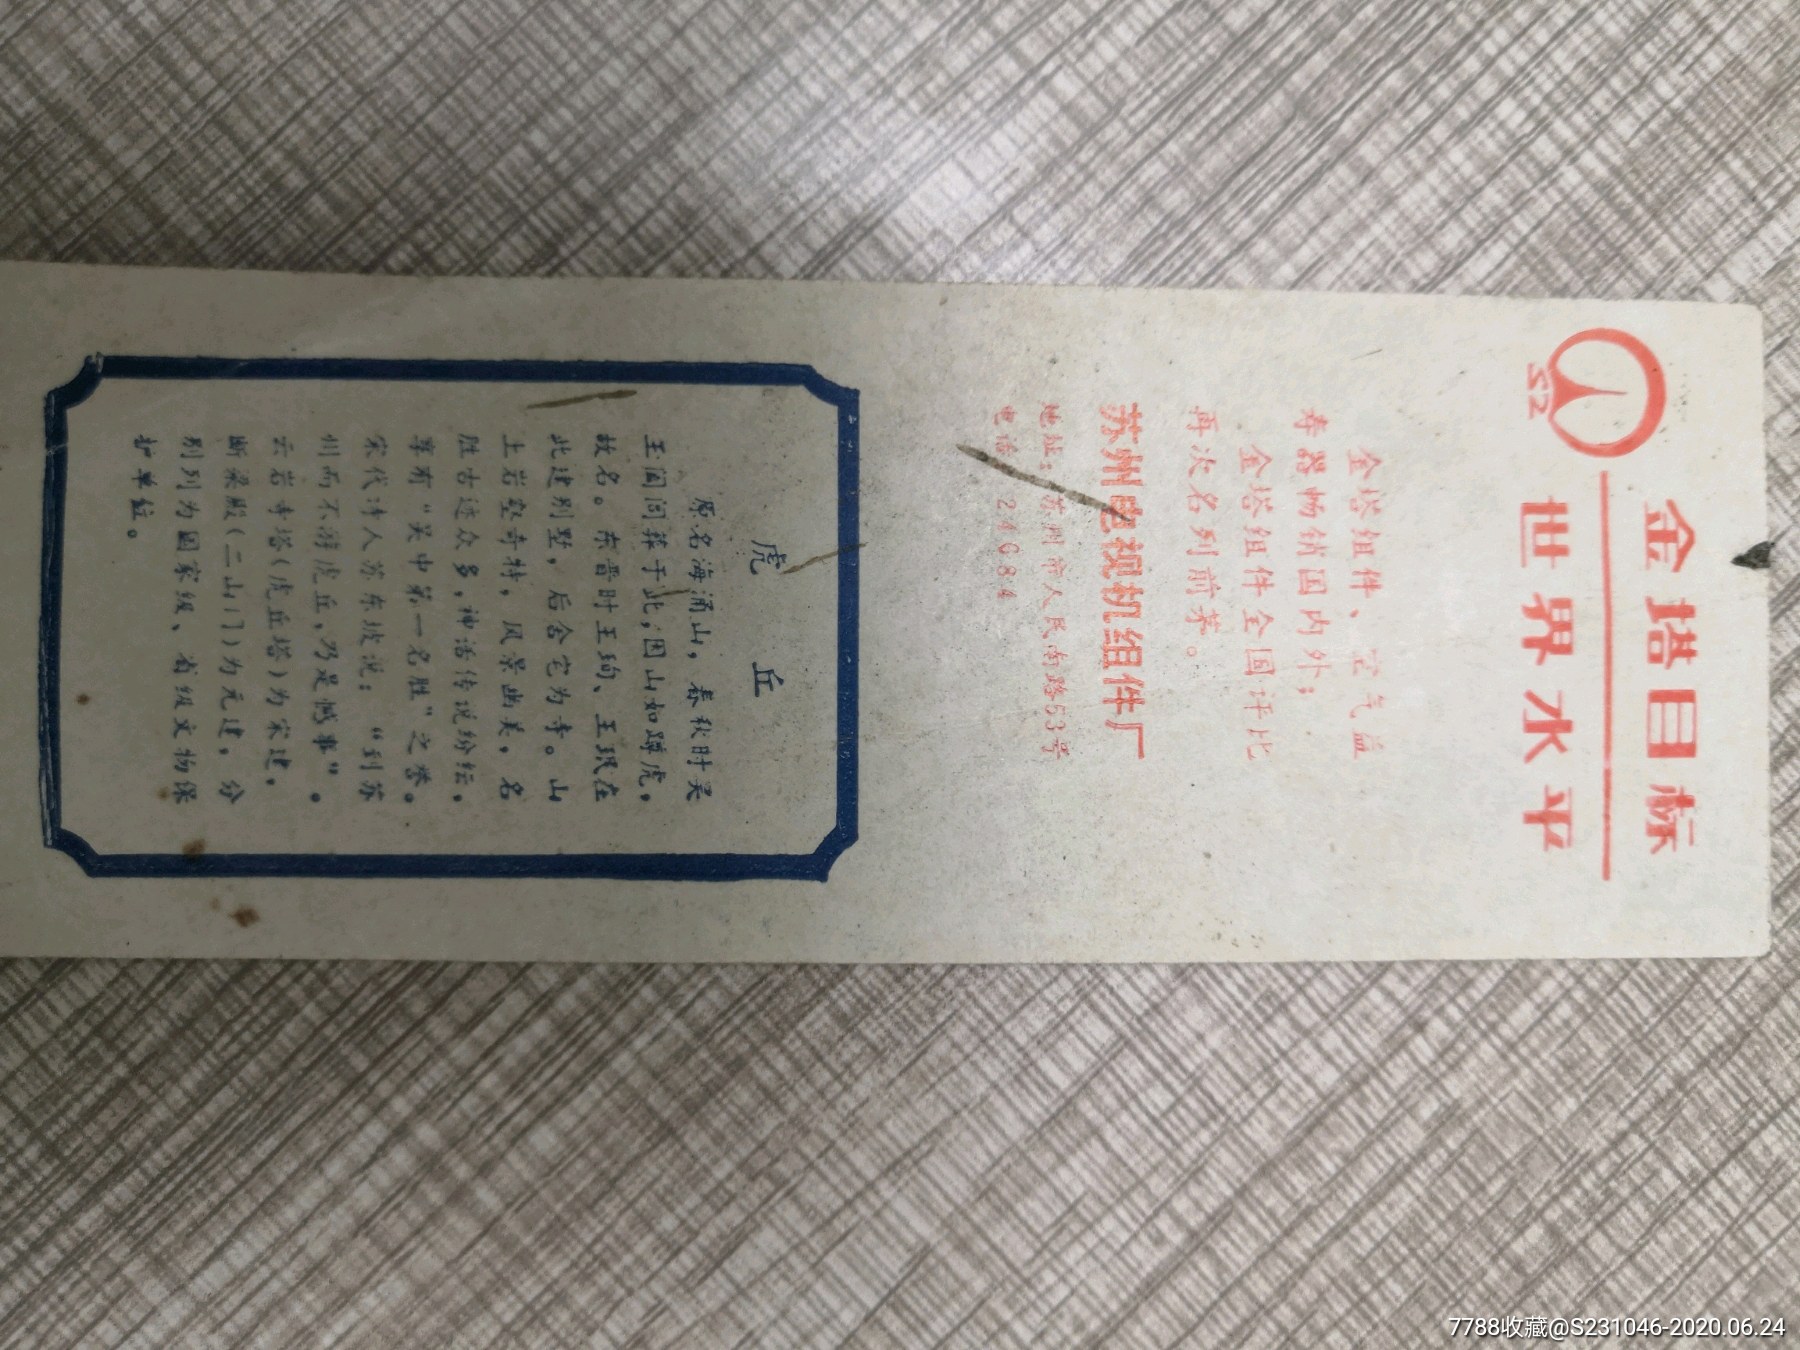 金塔目标
世界水平
SZ
金塔组件、空气益
寿器畅销国内外；
金塔组件全国评比
再次名列前茅。
苏州电视机组件厂
地址：苏州市人民南路53号
电话 24684
虎 丘
原名海涌山，春秋时吴
王阖闾葬于此，因山如蹲虎，
故名。东晋时王珣、王珉在
此建别墅，后舍宅为寺。山
上岩壑奇特，风景幽美，名
胜古迹众多，神话传说纷纭，
享有“吴中第一名胜”之誉。
宋代诗人苏东坡说：“到苏
州而不游虎丘，乃是憾事”。
云岩寺塔（虎丘塔）为宋建，
断梁殿（二山门）为元建，分
别列为国家级、省级文物保
护单位。
7788收藏@S231046-2020.06.24